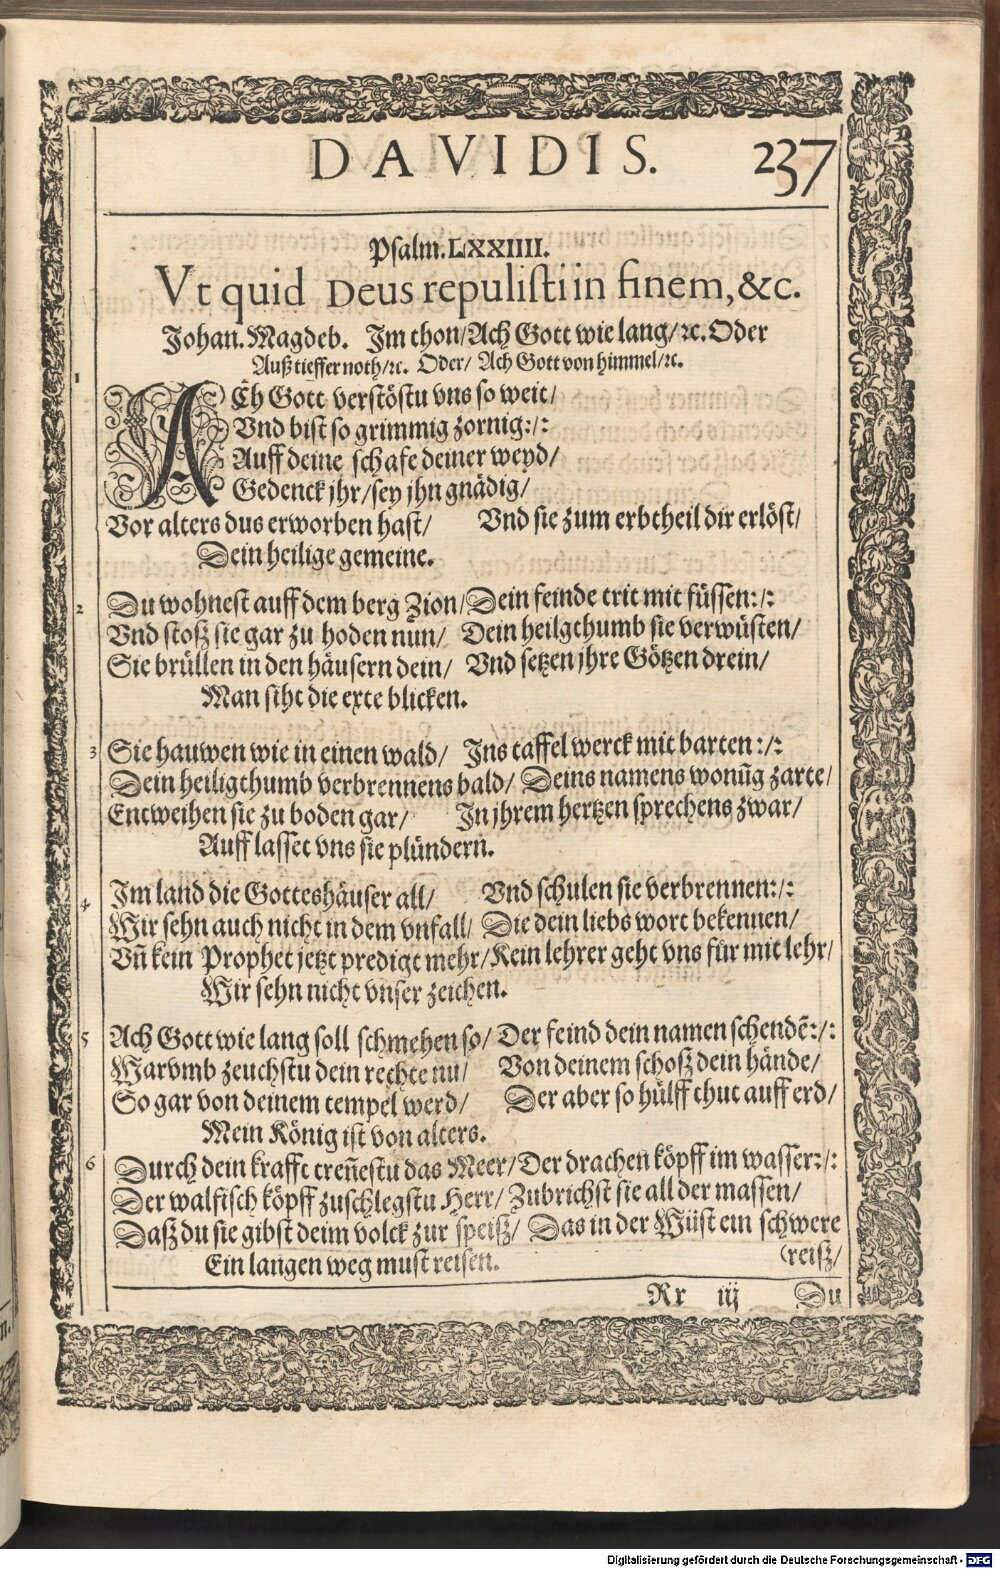 DAVIDIS. 237
Psalm. LXXIIII.
Vt quid Deus repulisti in finem, &c.
Johan. Magdeb. Im thon/ Ach Gott wie lang/ ꝛc. Oder
Auß tieffer noth/ ꝛc. Oder/ Ach Gott von himmel/ ꝛc.
1 ACh Gott verstöstu vns so weit/
Vnd bist so grimmig zornig:/:
Auff deine schafe deiner weyd/
Gedenck jhr/ sey jhn gnädig/
Vor alters dus erworben hast/ Vnd sie zum erbtheil dir erlöst/
Dein heilige gemeine.
2 Du wohnest auff dem berg Zion/ Dein feinde trit mit füssen:/:
Vnd stoß sie gar zu boden nun/ Dein heilgthumb sie verwüsten/
Sie brüllen in den häusern dein/ Vnd setzen jhre Götzen drein/
Man siht die exte blicken.
3 Sie hauwen wie in einen wald/ Ins taffel werck mit barten:/:
Dein heiligthumb verbrennens bald/ Deins namens wonũg zarte/
Entweihen sie zu boden gar/ In jhrem hertzen sprechens zwar/
Auff lasset vns sie plündern.
4 Im land die Gotteshäuser all/ Vnd schulen sie verbrennen:/:
Wir sehn auch nicht in dem vnfall/ Die dein liebs wort bekennen/
Vñ kein Prophet jetzt predigt mehr/ Kein lehrer geht vns für mit lehr/
Wir sehn nicht vnser zeichen.
5 Ach Gott wie lang soll schmehen so/ Der feind dein namen schendẽ:/:
Warvmb zeuchstu dein rechte nu/ Von deinem schoß dein hände/
So gar von deinem tempel werd/ Der aber so hülff thut auff erd/
Mein König ist von alters.
6 Durch dein krafft treñestu das Meer/ Der drachen köpff im wasser:/:
Der walfisch köpff zuschlegstu Herr/ Zubrichst sie all der massen/
Daß du sie gibst deim volck zur speiß/ Das in der Wüst ein schwere
Ein langen weg must reisen. (reiß/
Rr iij Du
Digitalisierung gefördert durch die Deutsche Forschungsgemeinschaft - DFG